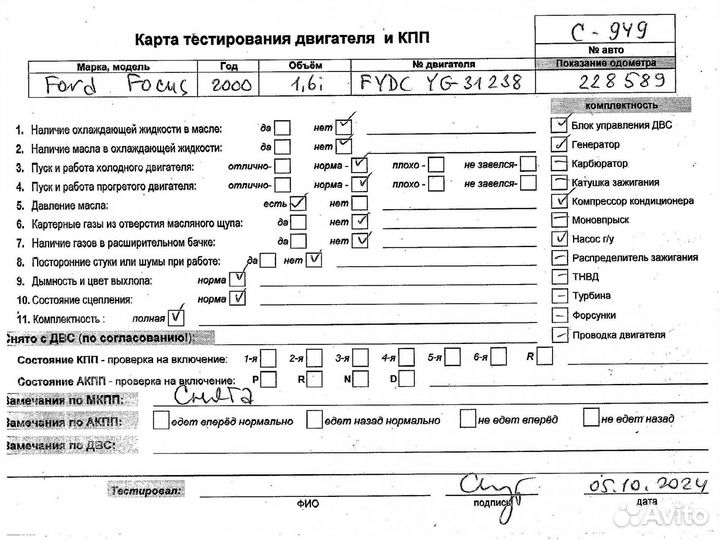 С-949
Карта тестирования двигателя и КПП
№ авто
Марка, модель Год Объём № двигателя Показание одометра
Ford Focus 2000 1,6i FYDC YG-31238 228589
комплектность
1. Наличие охлаждающей жидкости в масле: да нет
Блок управления ДВС
2. Наличие масла в охлаждающей жидкости: да нет
Генератор
3. Пуск и работа холодного двигателя: отлично- норма - плохо - не завелся-
Карбюратор
4. Пуск и работа прогретого двигателя: отлично- норма - плохо - не завелся-
Катушка зажигания
5. Давление масла: есть нет
Компрессор кондиционера
6. Картерные газы из отверстия масляного щупа: да нет
Моновпрыск
7. Наличие газов в расширительном бачке: да нет
Насос г/у
8. Посторонние стуки или шумы при работе: да нет
Распределитель зажигания
9. Дымность и цвет выхлопа: норма
ТНВД
10. Состояние сцепления: норма
Турбина
11. Комплектность : полная
Форсунки
Снято с ДВС (по согласованию!):
Проводка двигателя
Состояние КПП - проверка на включение: 1-я 2-я 3-я 4-я 5-я 6-я R
Состояние АКПП - проверка на включение: P R N D
Замечания по МКПП: Снята
Замечания по АКПП: едет вперёд нормально едет назад нормально не едет вперёд не едет назад
Замечания по ДВС:
Тестировал: 05.10.2024
ФИО подпись дата
Avito